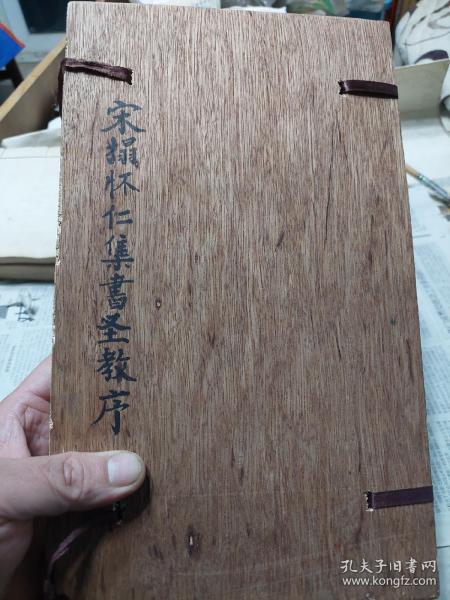 宋搨怀仁集書圣教序
孔夫子旧书网
www.kongfz.com